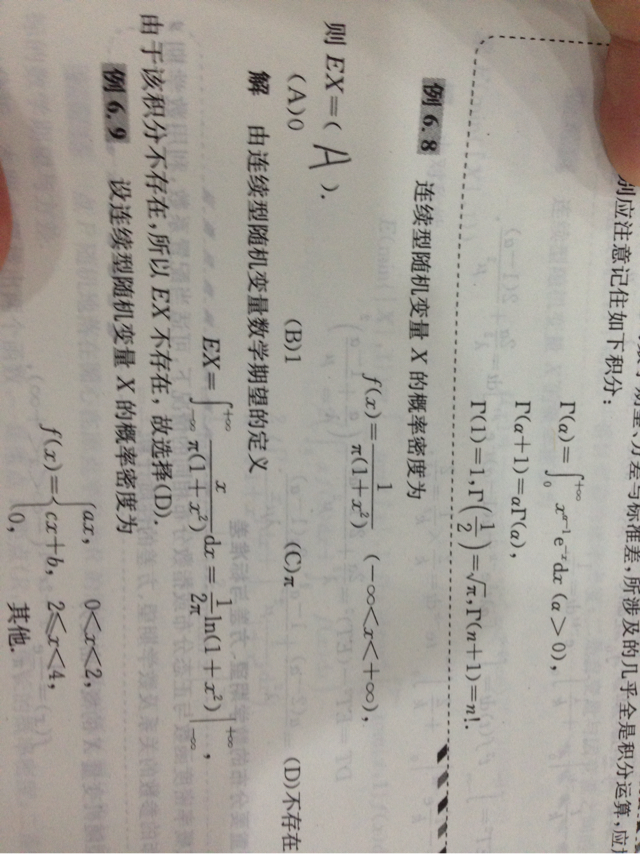 别应注意记住如下积分:
Γ(α)=∫₀^{+∞} x^{α-1}e^{-x}dx (α>0),
Γ(α+1)=αΓ(α),
Γ(1)=1,Γ(1/2)=√π,Γ(n+1)=n!.
例 6.8 连续型随机变量 X 的概率密度为
f(x)=1/π(1+x²) (-∞<x<+∞),
则 EX=( A ).
(A)0 (B)1 (C)π (D)不存在
解 由连续型随机变量数学期望的定义
EX=∫_{-∞}^{+∞} x/π(1+x²) dx = 1/2π ln(1+x²) |_{-∞}^{+∞},
由于该积分不存在,所以 EX 不存在,故选择(D).
例 6.9 设连续型随机变量 X 的概率密度为
f(x)={ax, 0<x<2,
cx+b, 2≤x<4,
0, 其他.